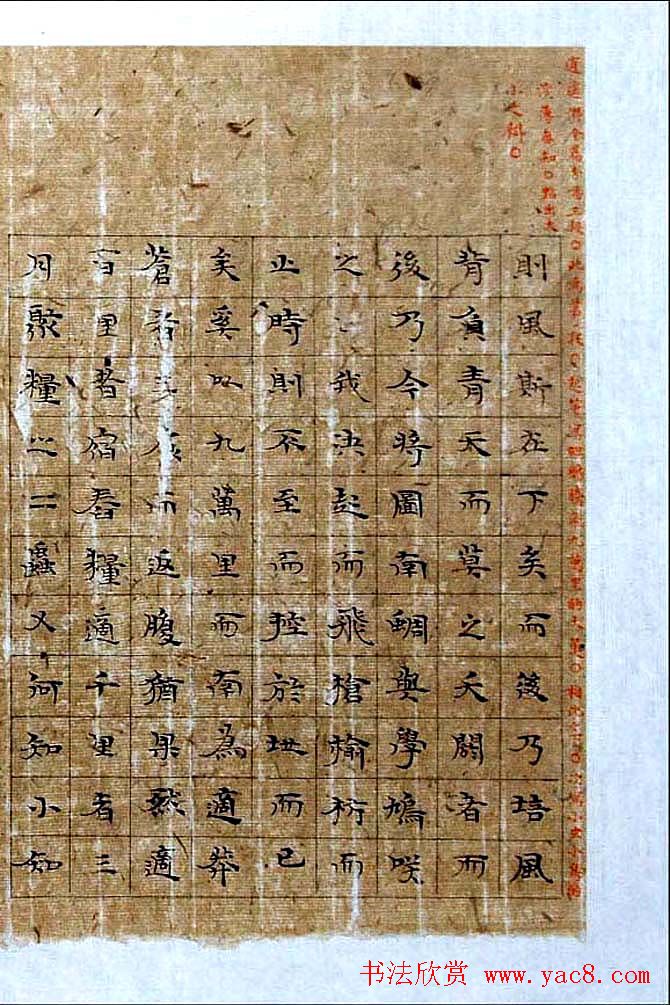 則風斯在下矣而後乃培風
背負青天而莫之夭閼者而
後乃今將圖南蜩與學鳩咲
之我決起而飛搶榆枋而
止時則不至而控於地而已
矣奚以九萬里而南為適莽
蒼者三而返腹猶果然適
百里者宿舂糧適千里者三
月聚糧之二蟲又何知小知
點出大
小之辯。
书法欣赏 www.yac8.com